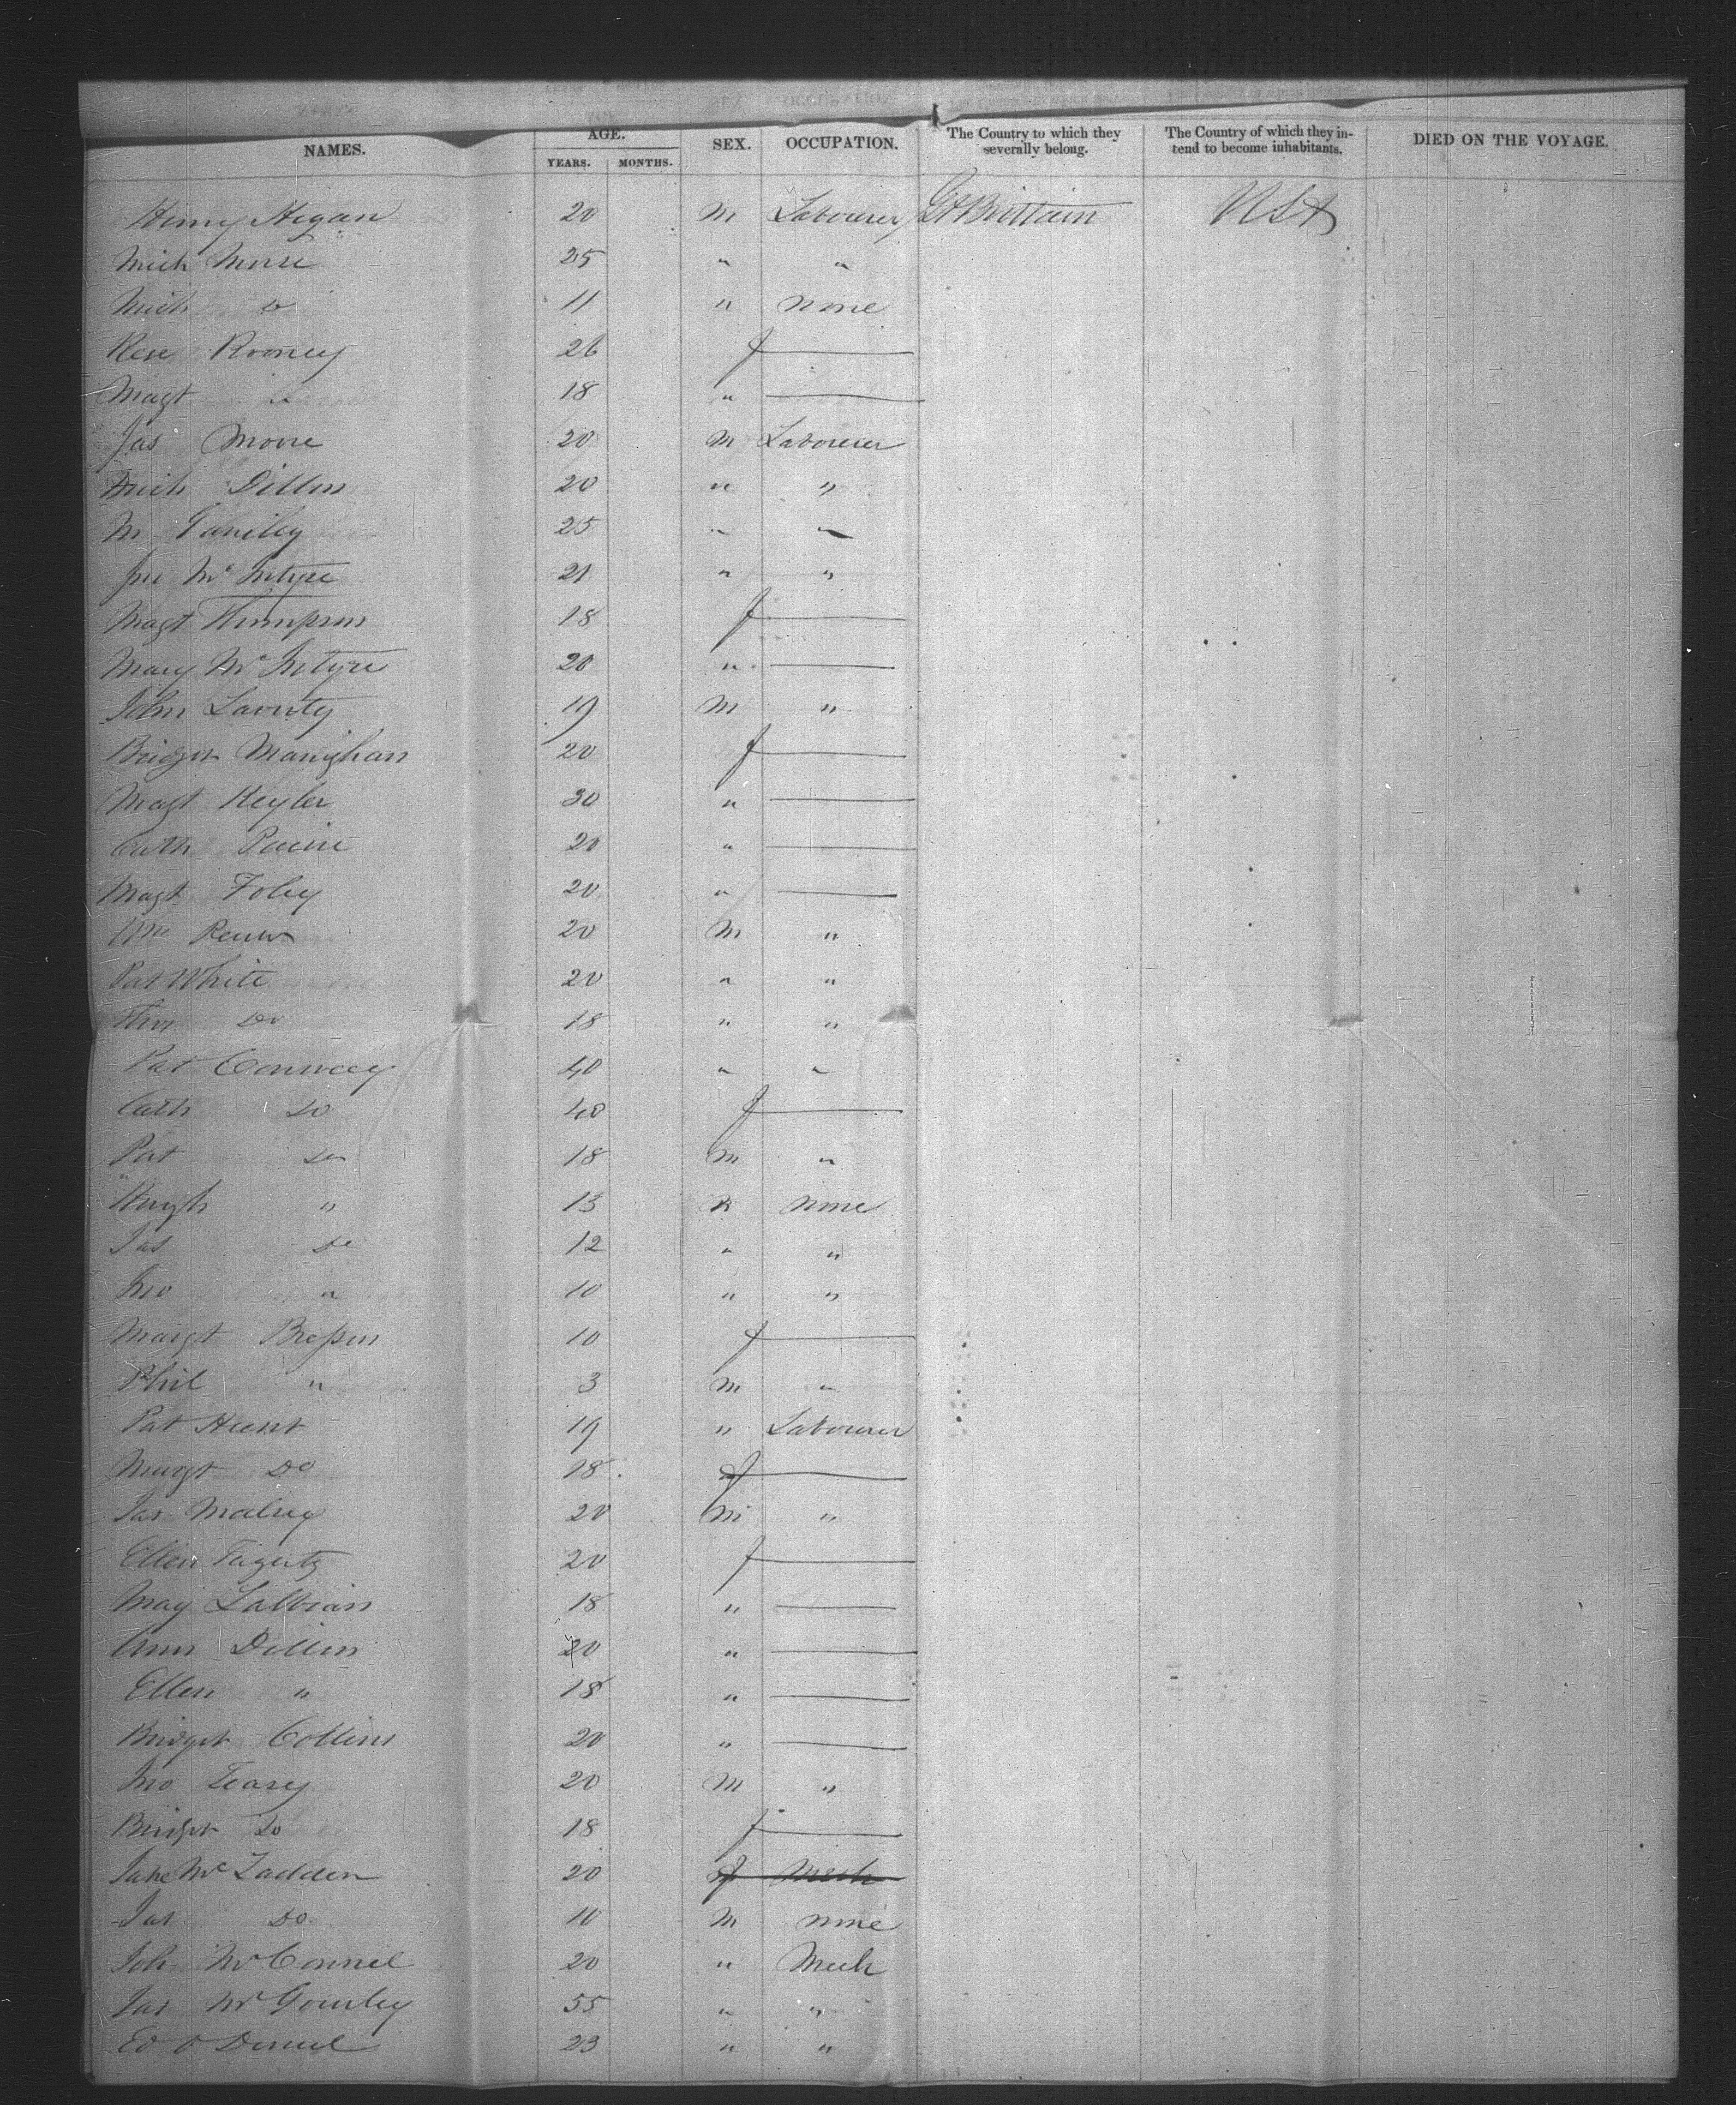 NAMES. AGE. SEX. OCCUPATION. The Country to which they severally belong. The Country of which they intend to become inhabitants. DIED ON THE VOYAGE.
YEARS. MONTHS.
Henry Hegan 20 M Labourer Gt Brittain USA
Mich Moore 25 " "
Mich Do 11 " none
Rooney 26 f
Magt Do 18 "
Jas Moore 20 M Labourer
Mich Dillon 20 " "
M 25 " "
Jno McIntyre 21 " "
Magt Thompson 18 f
Mary McIntyre 20 "
John Laverty 19 M "
Bridget Manighan 20 f
Magt Keyler 30 "
Cath 20 "
Magt Foley 20 "
20 M "
Pat White 20 " "
Do 18 " "
Pat Conway 40 " "
Cath Do 40 f
Pat Do 18 M "
Hugh " 13 " none
Jas Do 12 " "
Jno " 10 " "
Margt 10 f
Phil " 3 M "
Pat Hunt 19 " Labourer
Margt Do 18 f
Jas 20 M "
Ellen Fagerty 20 f
18 "
Ann Dillon 20 "
Ellen " 18 "
Bridget Collins 20 "
Jno Leary 20 M "
Bridget Do 18 f
Jane McFadden 20 f Mech
Jas Do 10 M none
Joh McConnel 20 " Mech
Jas McGourley 55 " "
Ed O 23 " "